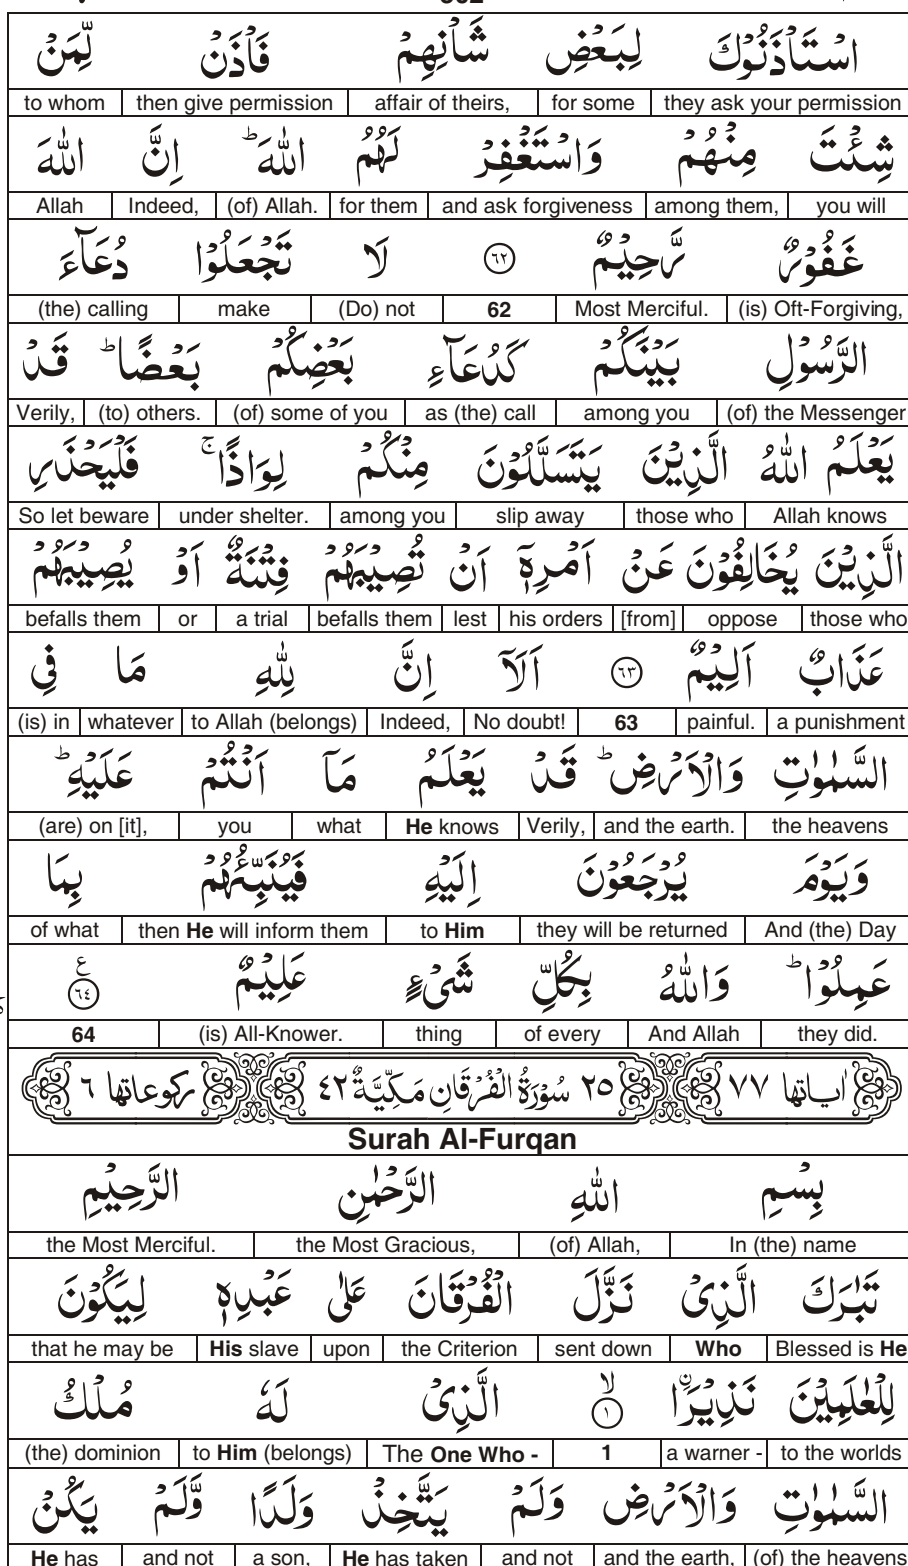 اسْتَاْذَنُوْكَ لِبَعْضِ شَاْنِهِمْ فَاْذَنْ لِّمَنْ
to whom then give permission affair of theirs, for some they ask your permission
شِئْتَ مِنْهُمْ وَاسْتَغْفِرْ لَهُمُ اللّٰهَ ؕ اِنَّ اللّٰهَ
Allah Indeed, (of) Allah. for them and ask forgiveness among them, you will
غَفُوْرٌ رَّحِيْمٌ ٦٢ لَا تَجْعَلُوْا دُعَآءَ
(the) calling make (Do) not 62 Most Merciful. (is) Oft-Forgiving,
الرَّسُوْلِ بَيْنَكُمْ كَدُعَآءِ بَعْضِكُمْ بَعْضًا ؕ قَدْ
Verily, (to) others. (of) some of you as (the) call among you (of) the Messenger
يَعْلَمُ اللّٰهُ الَّذِيْنَ يَتَسَلَّلُوْنَ مِنْكُمْ لِوَاذًا ۚ فَلْيَحْذَرِ
So let beware under shelter. among you slip away those who Allah knows
الَّذِيْنَ يُخَالِفُوْنَ عَنْ اَمْرِهٖٓ اَنْ تُصِيْبَهُمْ فِتْنَةٌ اَوْ يُصِيْبَهُمْ
befalls them or a trial befalls them lest his orders [from] oppose those who
عَذَابٌ اَلِيْمٌ ٦٣ اَلَآ اِنَّ لِلّٰهِ مَا فِي
(is) in whatever to Allah (belongs) Indeed, No doubt! 63 painful. a punishment
السَّمٰوٰتِ وَالْاَرْضِ ؕ قَدْ يَعْلَمُ مَآ اَنْتُمْ عَلَيْهِ ؕ
(are) on [it], you what He knows Verily, and the earth. the heavens
وَيَوْمَ يُرْجَعُوْنَ اِلَيْهِ فَيُنَبِّئُهُمْ بِمَا
of what then He will inform them to Him they will be returned And (the) Day
عَمِلُوْا ؕ وَاللّٰهُ بِكُلِّ شَيْءٍ عَلِيْمٌ ٦٤ ع
64 (is) All-Knower. thing of every And Allah they did.
اٰياتها ٧٧ ٢٥ سُوْرَةُ الْفُرْقَانِ مَكِّيَّةٌ ٤٢ ركوعاتها ٦
Surah Al-Furqan
بِسْمِ اللّٰهِ الرَّحْمٰنِ الرَّحِيْمِ
the Most Merciful. the Most Gracious, (of) Allah, In (the) name
تَبٰرَكَ الَّذِيْ نَزَّلَ الْفُرْقَانَ عَلٰى عَبْدِهٖ لِيَكُوْنَ
that he may be His slave upon the Criterion sent down Who Blessed is He
لِلْعٰلَمِيْنَ نَذِيْرَا ۙ ١ الَّذِيْ لَهٗ مُلْكُ
(the) dominion to Him (belongs) The One Who - 1 a warner - to the worlds
السَّمٰوٰتِ وَالْاَرْضِ وَلَمْ يَتَّخِذْ وَلَدًا وَّلَمْ يَكُنْ
He has and not a son, He has taken and not and the earth, (of) the heavens